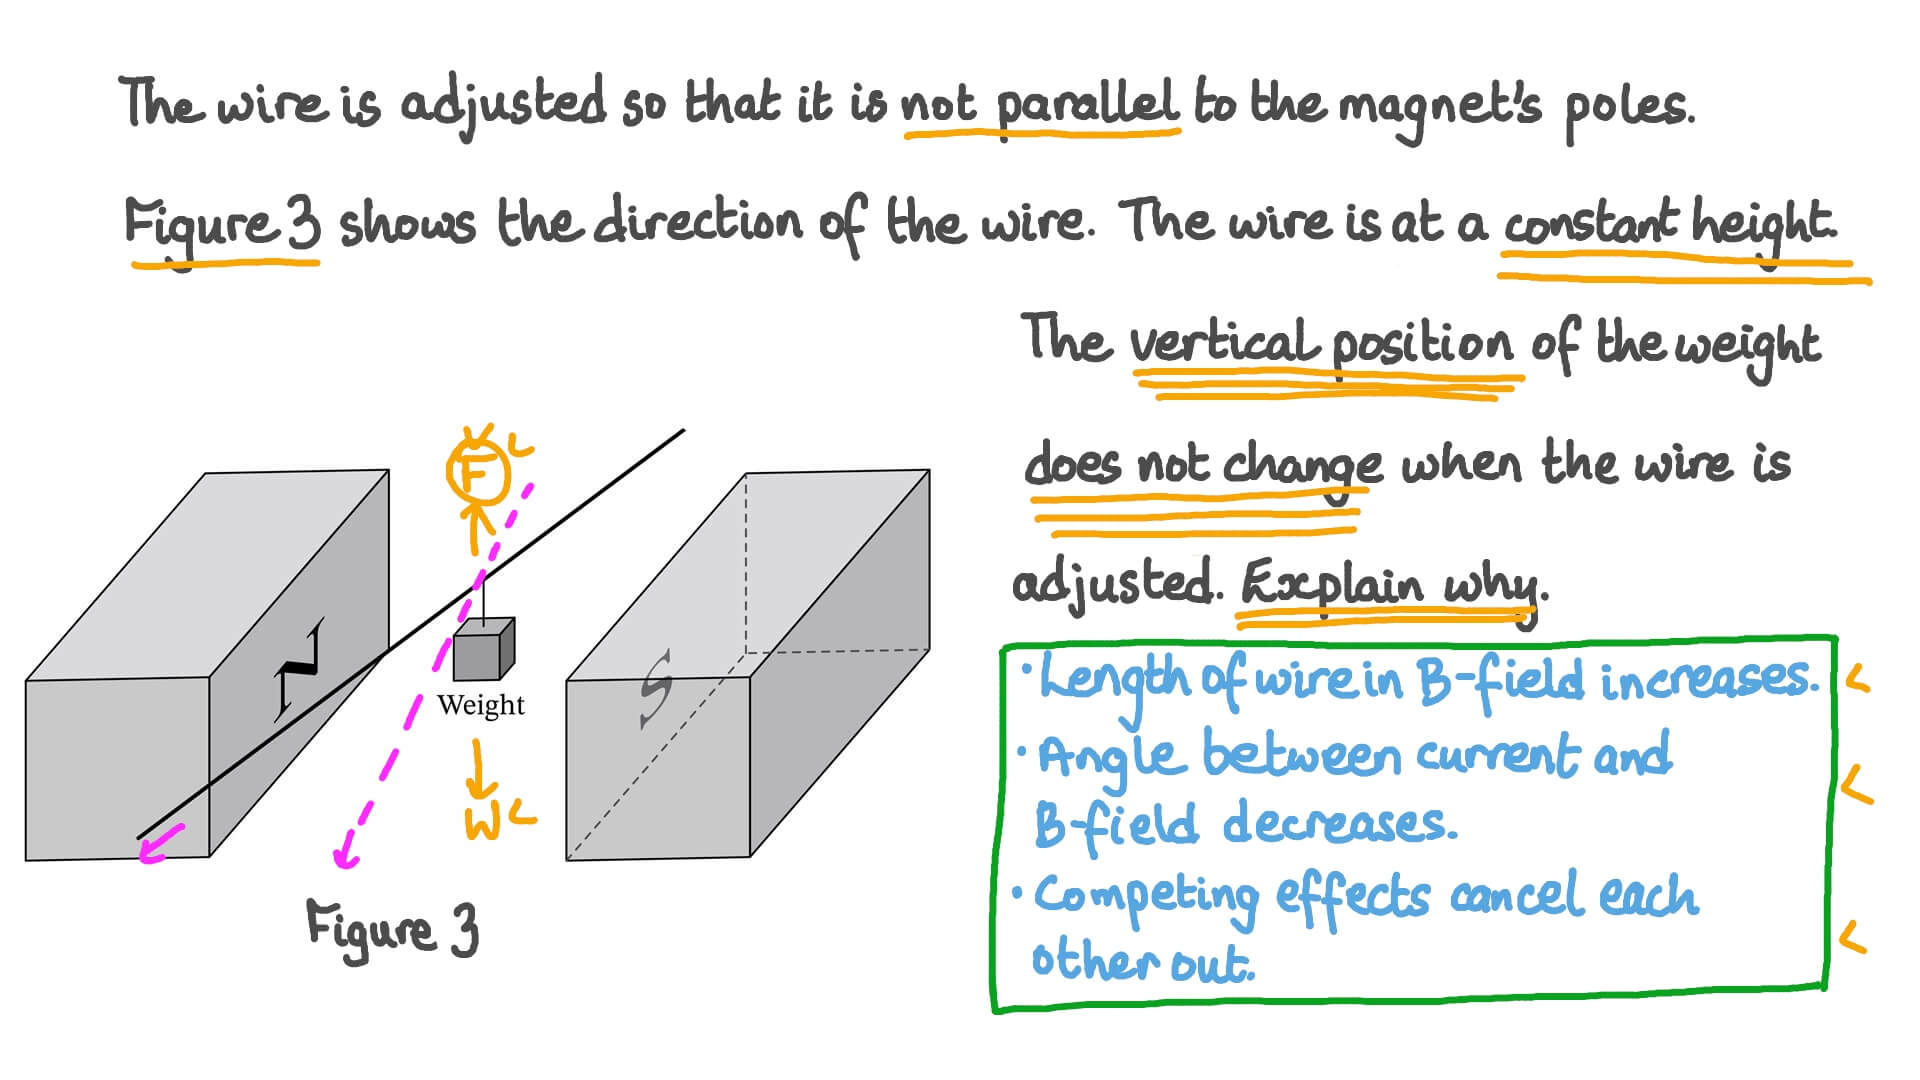 The wire is adjusted so that it is not parallel to the magnet's poles.
Figure 3 shows the direction of the wire. The wire is at a constant height.
The vertical position of the weight
does not change when the wire is
adjusted. Explain why.
F
N
S
Weight
W
Figure 3
• Length of wire in B-field increases.
• Angle between current and
B-field decreases.
• Competing effects cancel each
other out.